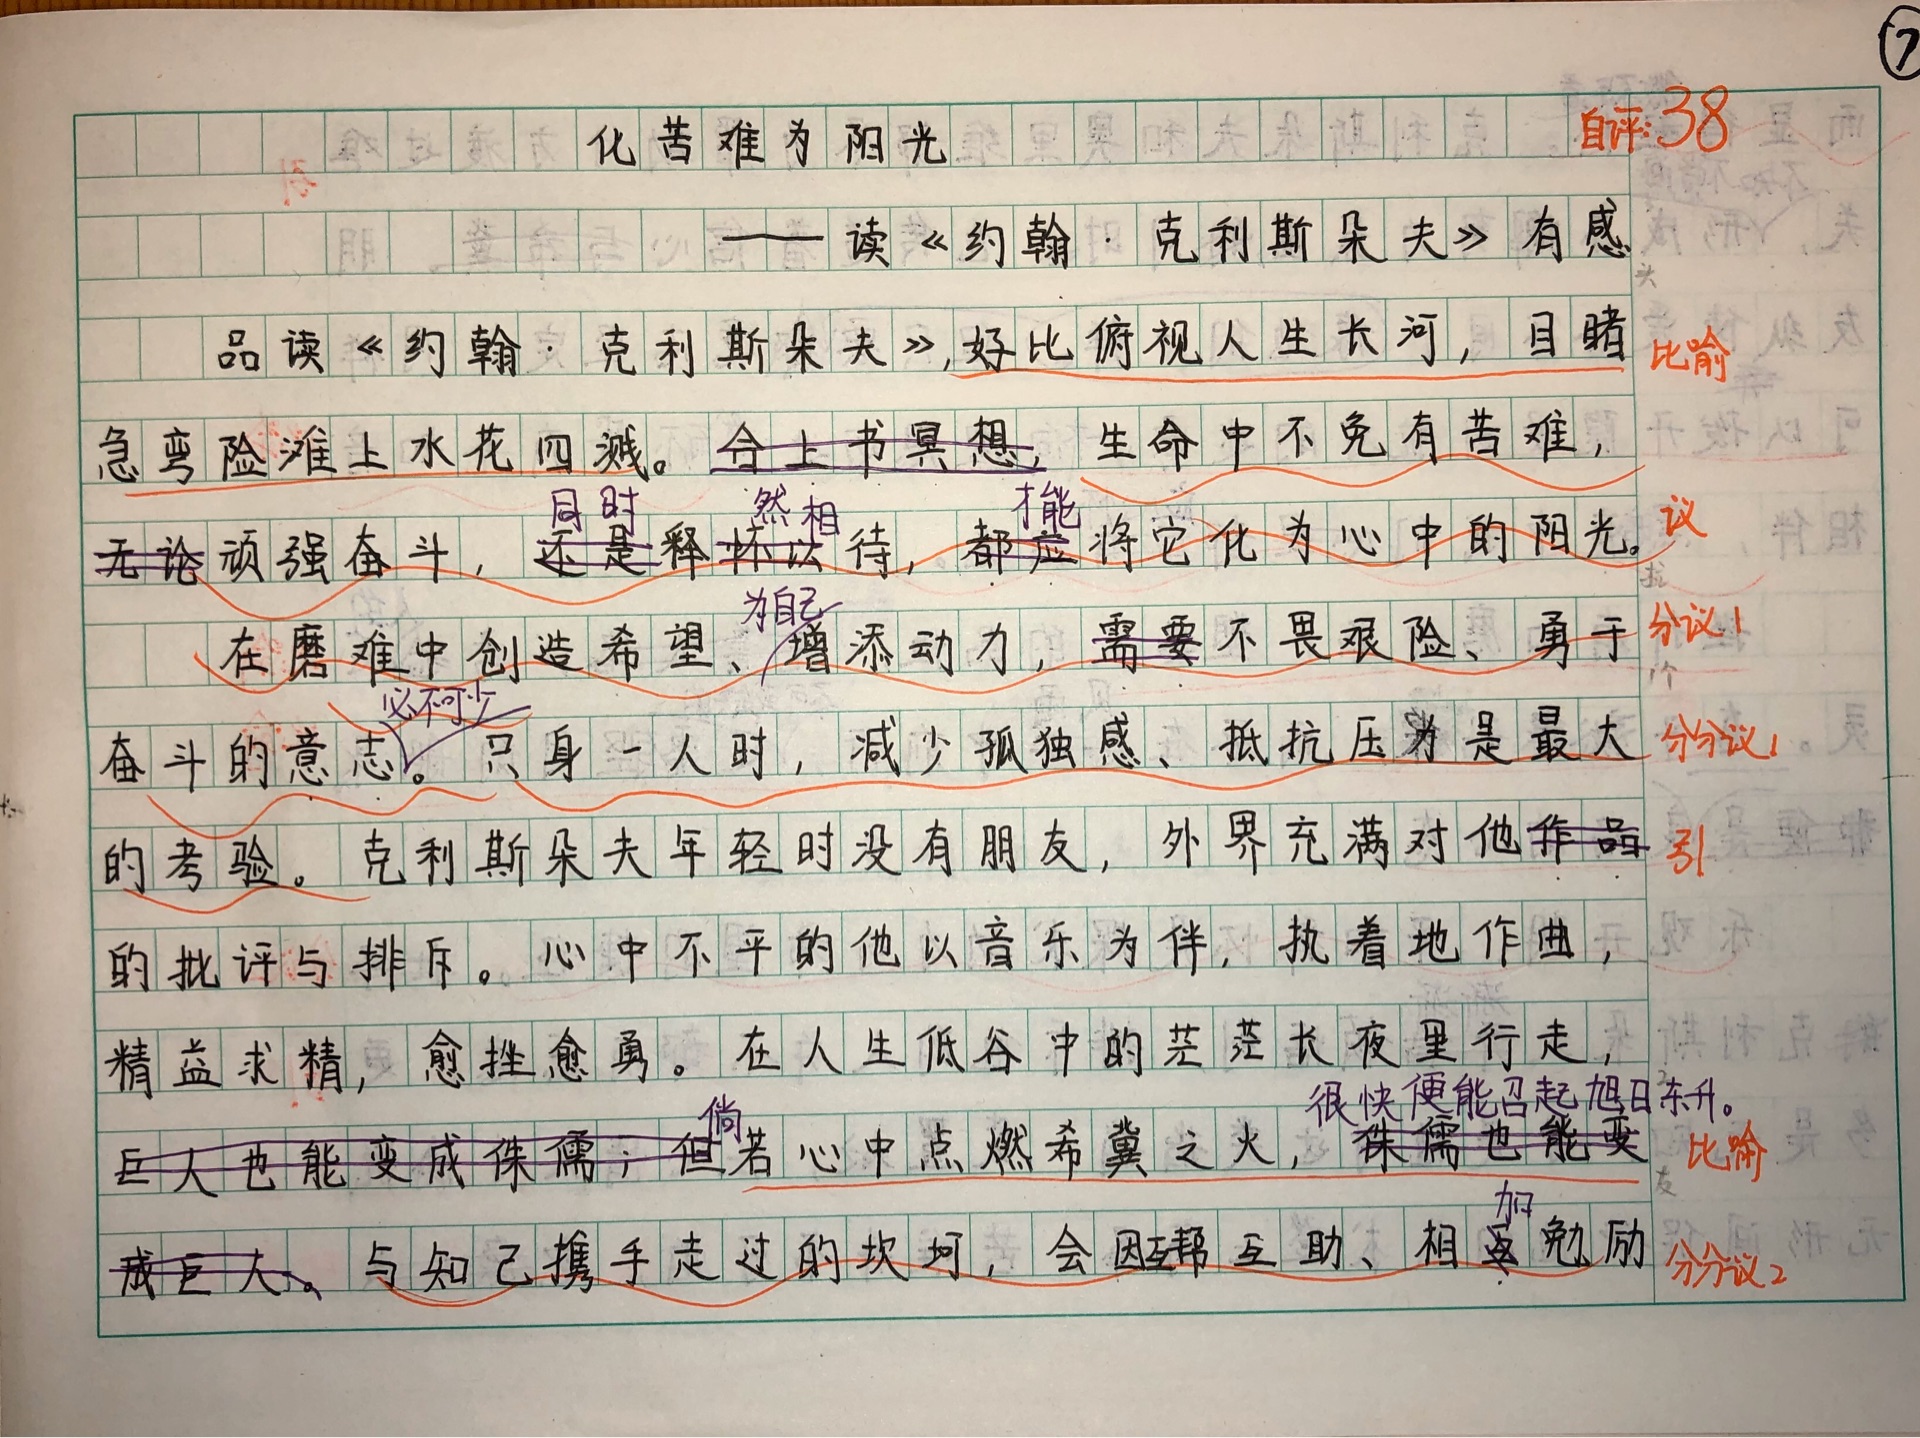 ⑦
自评:38
化苦难为阳光
——读《约翰·克利斯朵夫》有感
品读《约翰·克利斯朵夫》,好比俯视人生长河，目睹
比喻
急弯险滩上水花四溅。合上书冥想，生命中不免有苦难，
同时 然相 才能
无论顽强奋斗，还是释怀以待，都应将它化为心中的阳光。
议
为自己
在磨难中创造希望、增添动力，需要不畏艰险、勇于
分议1
必不可少
奋斗的意志。只身一人时，减少孤独感、抵抗压力是最大
分分议1
的考验。克利斯朵夫年轻时没有朋友，外界充满对他作品
引
的批评与排斥。心中不平的他以音乐为伴，执着地作曲，
精益求精，愈挫愈勇。在人生低谷中的茫茫长夜里行走，
倘 很快便能召起旭日东升。
巨人也能变成侏儒；但若心中点燃希冀之火，侏儒也能变
比喻
加
成巨人。与知己携手走过的坎坷，会因互帮互助、相互勉励
分分议2